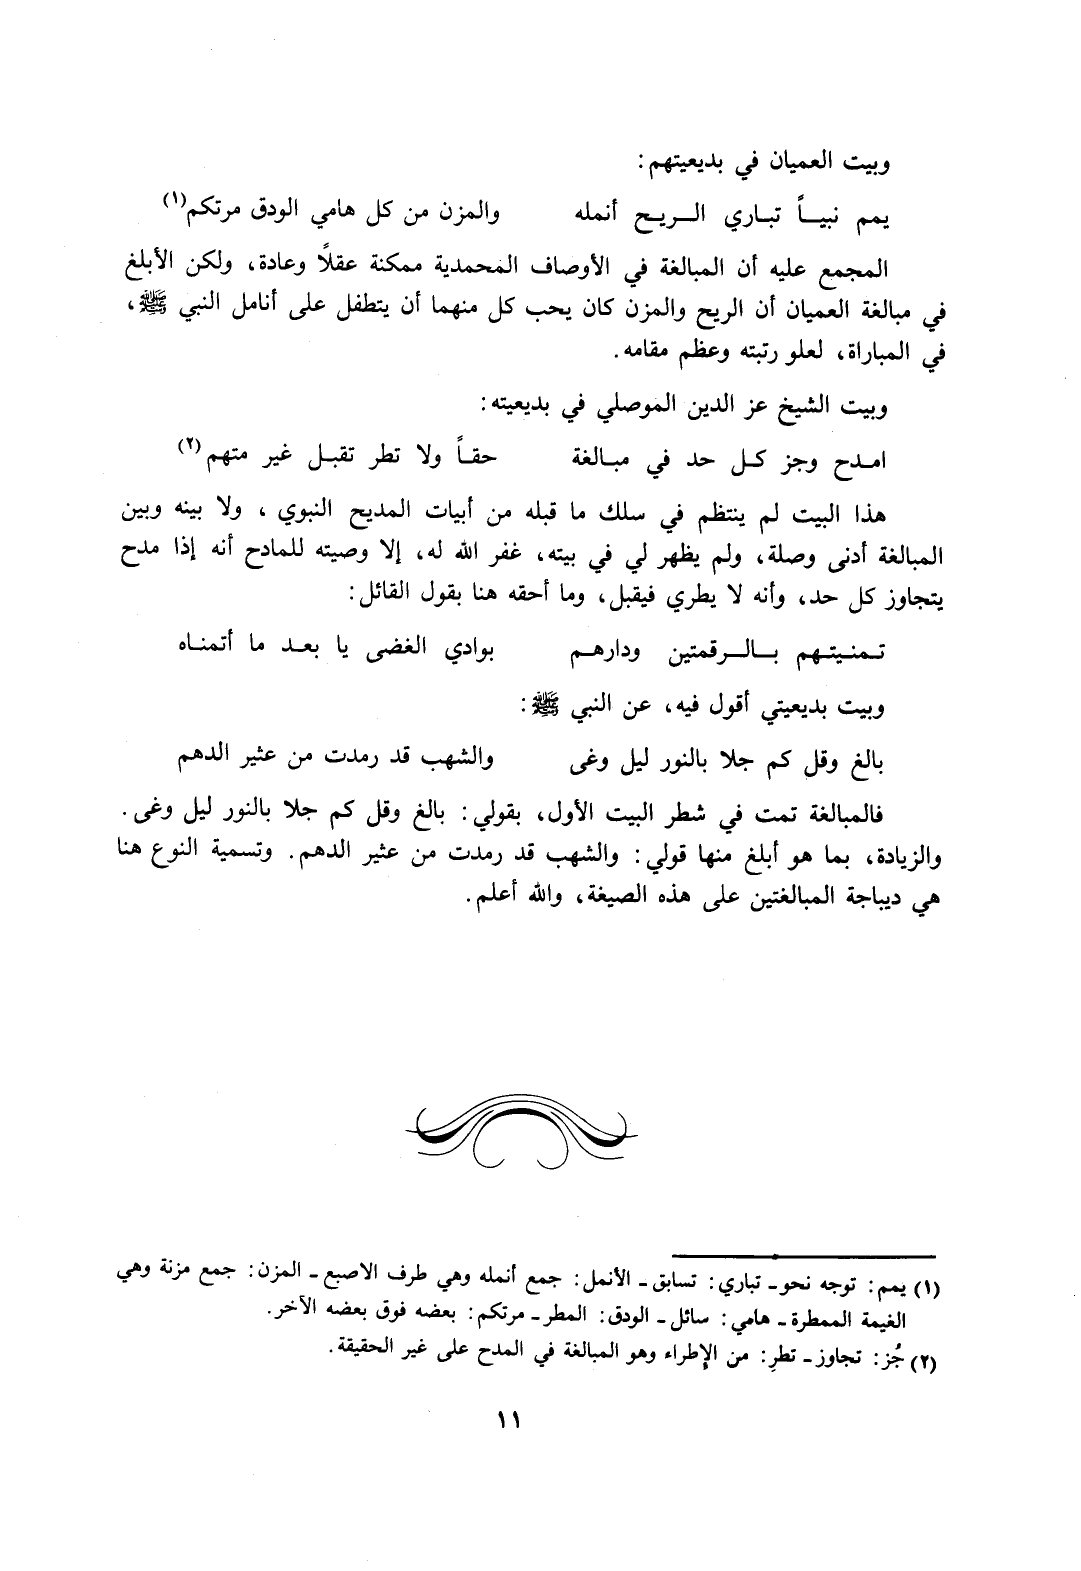 وبيت العميان في بديعيتهم:
يمم نبيـــاً تبـاري الـــريـح أنمله والمزن من كل هامي الودق مرتكم(١)
المجمع عليه أن المبالغة في الأوصاف المحمدية ممكنة عقلاً وعادة، ولكن الأبلغ
في مبالغة العميان أن الريح والمزن كان يحب كل منهما أن يتطفل على أنامل النبي ﷺ،
في المباراة، لعلو رتبته وعظم مقامه.
وبيت الشيخ عز الدين الموصلي في بديعيته:
امـدح وجز كـل حد في مبـالغة حقـاً ولا تطر تقبـل غير متهم(٢)
هذا البيت لم ينتظم في سلك ما قبله من أبيات المديح النبوي ، ولا بينه وبين
المبالغة أدنى وصلة، ولم يظهر لي في بيته، غفر الله له، إلا وصيته للمادح أنه إذا مدح
يتجاوز كل حد، وأنه لا يطري فيقبل، وما أحقه هنا بقول القائل:
تـمنـيتـهم بــالــرقمتين ودارهــم بوادي الغضى يا بعـد ما أتمنـاه
وبيت بديعيتي أقول فيه، عن النبي ﷺ:
بالغ وقل كم جلا بالنور ليل وغى والشهب قد رمدت من عثير الدهم
فالمبالغة تمت في شطر البيت الأول، بقولي: بالغ وقل كم جلا بالنور ليل وغى.
والزيادة، بما هو أبلغ منها قولي: والشهب قد رمدت من عثير الدهم. وتسمية النوع هنا
هي ديباجة المبالغتين على هذه الصيغة، والله أعلم.
(١) يمم: توجه نحو ـ تباري: تسابق ـ الأنمل: جمع أنمله وهي طرف الاصبع ـ المزن: جمع مزنة وهي
الغيمة الممطرة ـ هامي: سائل ـ الودق: المطر ـ مرتكم: بعضه فوق بعضه الآخر.
(٢) جُز: تجاوز ـ تطرِ: من الإطراء وهو المبالغة في المدح على غير الحقيقة.
١١